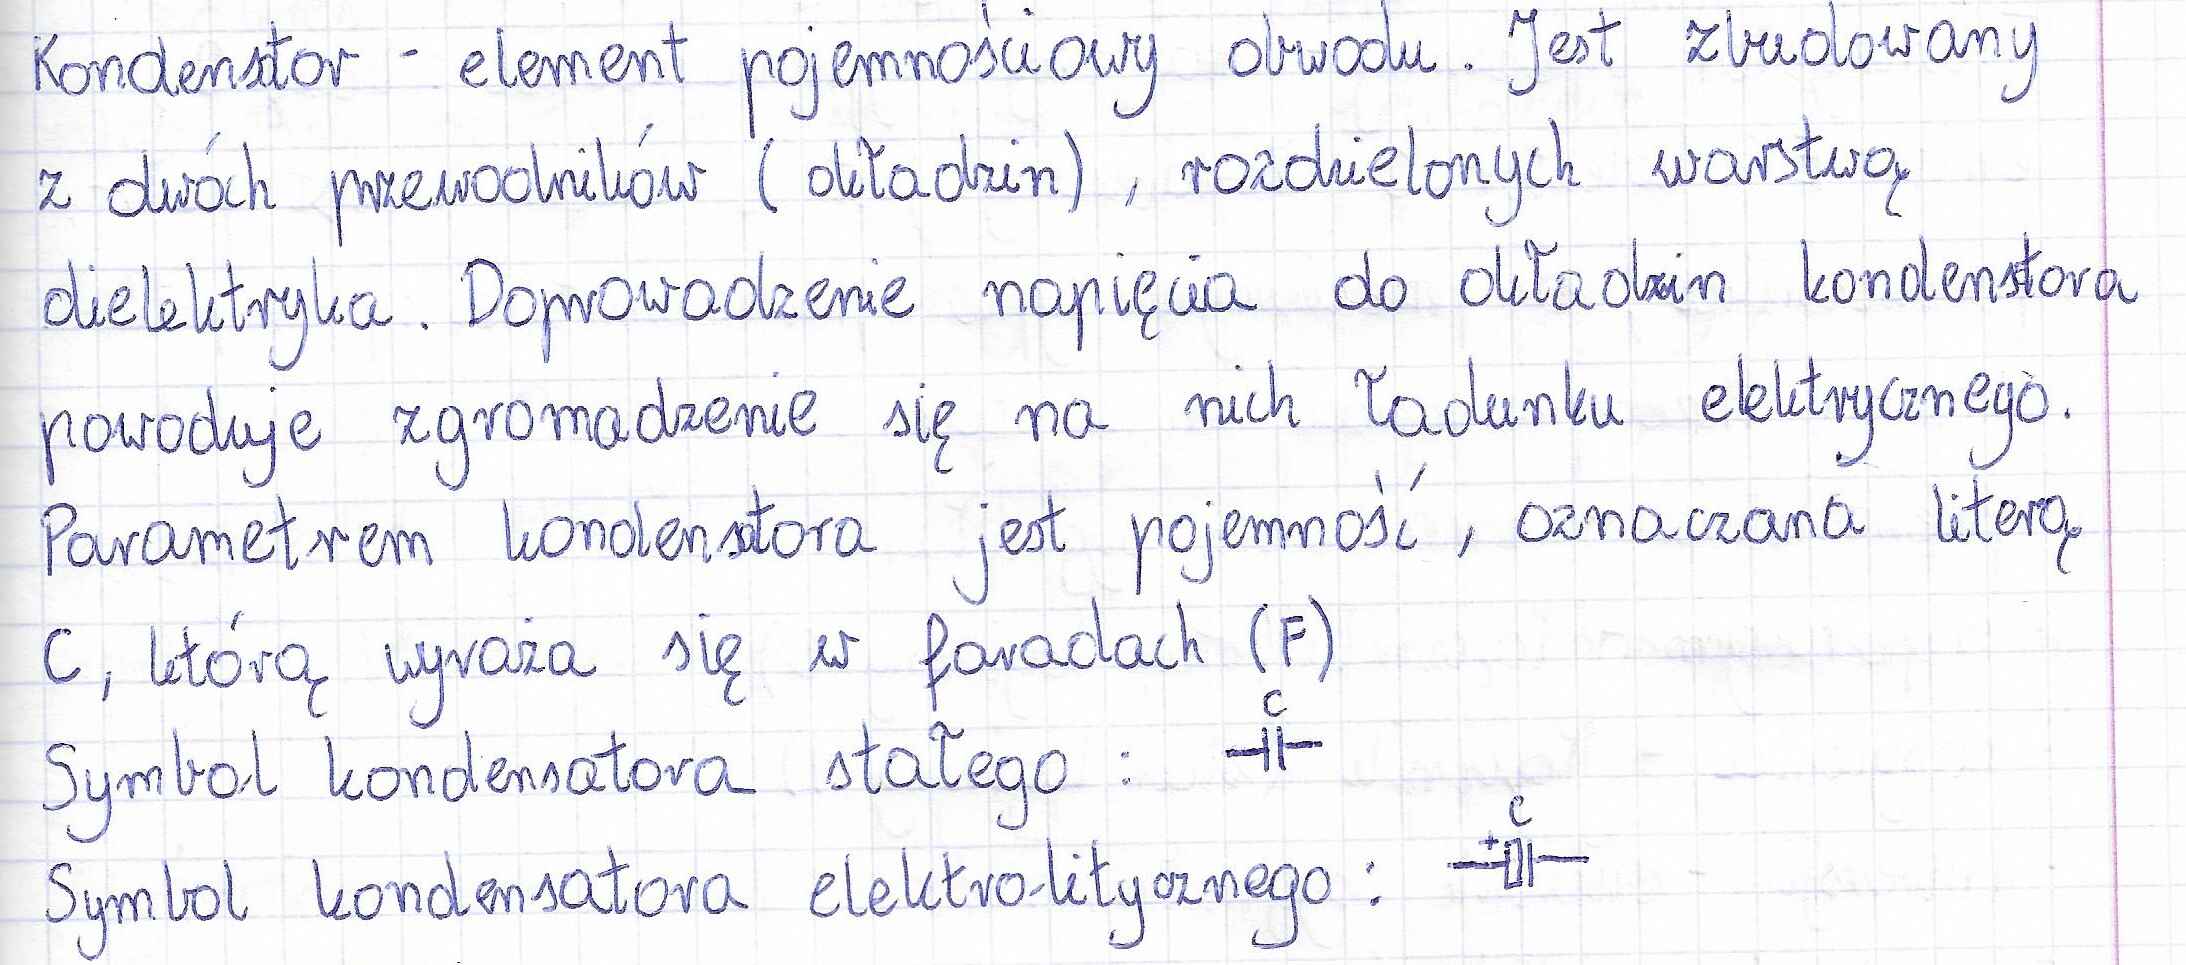 Kondensator - element pojemnościowy obwodu. Jest zbudowany
z dwóch przewodników (okładzin), rozdzielonych warstwą
dielektryka. Doprowadzenie napięcia do okładzin kondensatora
powoduje zgromadzenie się na nich ładunku elektrycznego.
Parametrem kondensatora jest pojemność, oznaczana literą
C, którą wyraża się w faradach (F)
C
Symbol kondensatora stałego :
C
+
Symbol kondensatora elektrolitycznego :